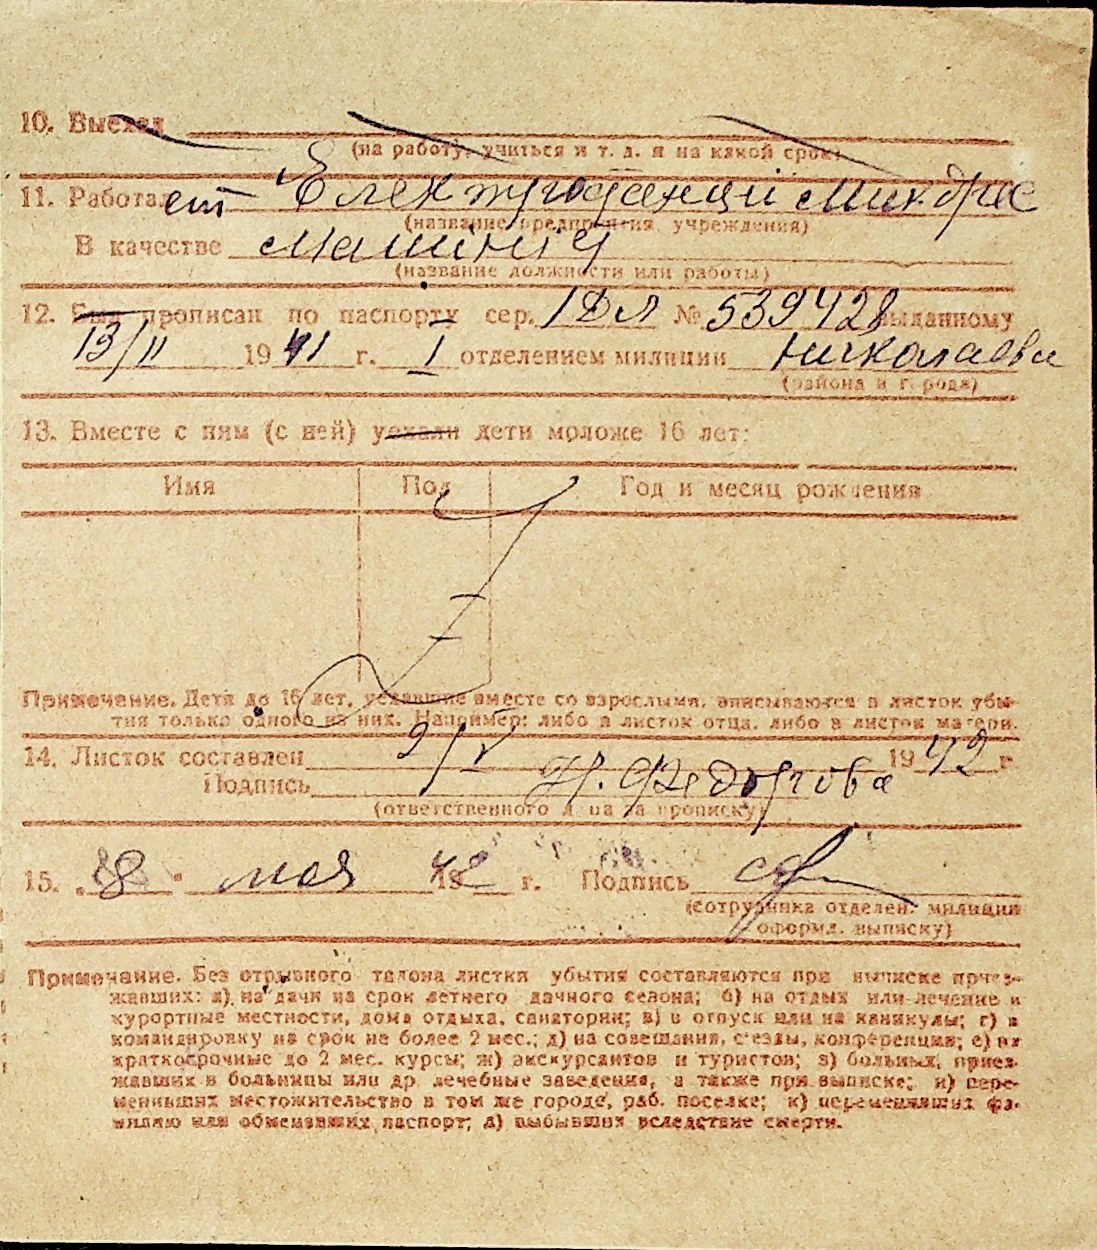 10. Выехал
(на работу, учиться и т. д. и на какой срок)
11. Работает Електростанци
(название предприятия, учреждения)
В качестве машиніч
(название должности или работы)
12. Был прописан по паспорту сер. І ДЛ № 539428 выданному
13/II 1941 г. I отделением милиции Николаева
(района и города)
13. Вместе с ним (с ней) уехали дети моложе 16 лет:
Имя Пол Год и месяц рождения
Примечание. Дети до 16 лет, уехавшие вместе со взрослыми, вписываются в листок убы-
тия только одного из них. Например: либо в листок отца, либо в листок матери.
14. Листок составлен 9/V 1942 г
Подпись Н. Федорова
(ответственного лица за прописку)
15. „18" мая 1942 г. Подпись
(сотрудника отделен. милиции
оформл. выписку)
Примечание. Без отрывного талона листки убытия составляются при выписке приез-
жавших: а) на дачи на срок летнего дачного сезона; б) на отдых или лечение в
курортные местности, дома отдыха, санатории; в) в отпуск или на каникулы; г) в
командировку на срок не более 2 мес.; д) на совещания, съезды, конференции; е) на
краткосрочные до 2 мес. курсы; ж) экскурсантов и туристов; з) больных, приез-
жавших в больницы или др. лечебные заведения, а также при выписке; и) пере-
менивших местожительство в том же городе, раб. поселке; к) переменивших фа-
милию или обменявших паспорт; л) выбывших вследствие смерти.